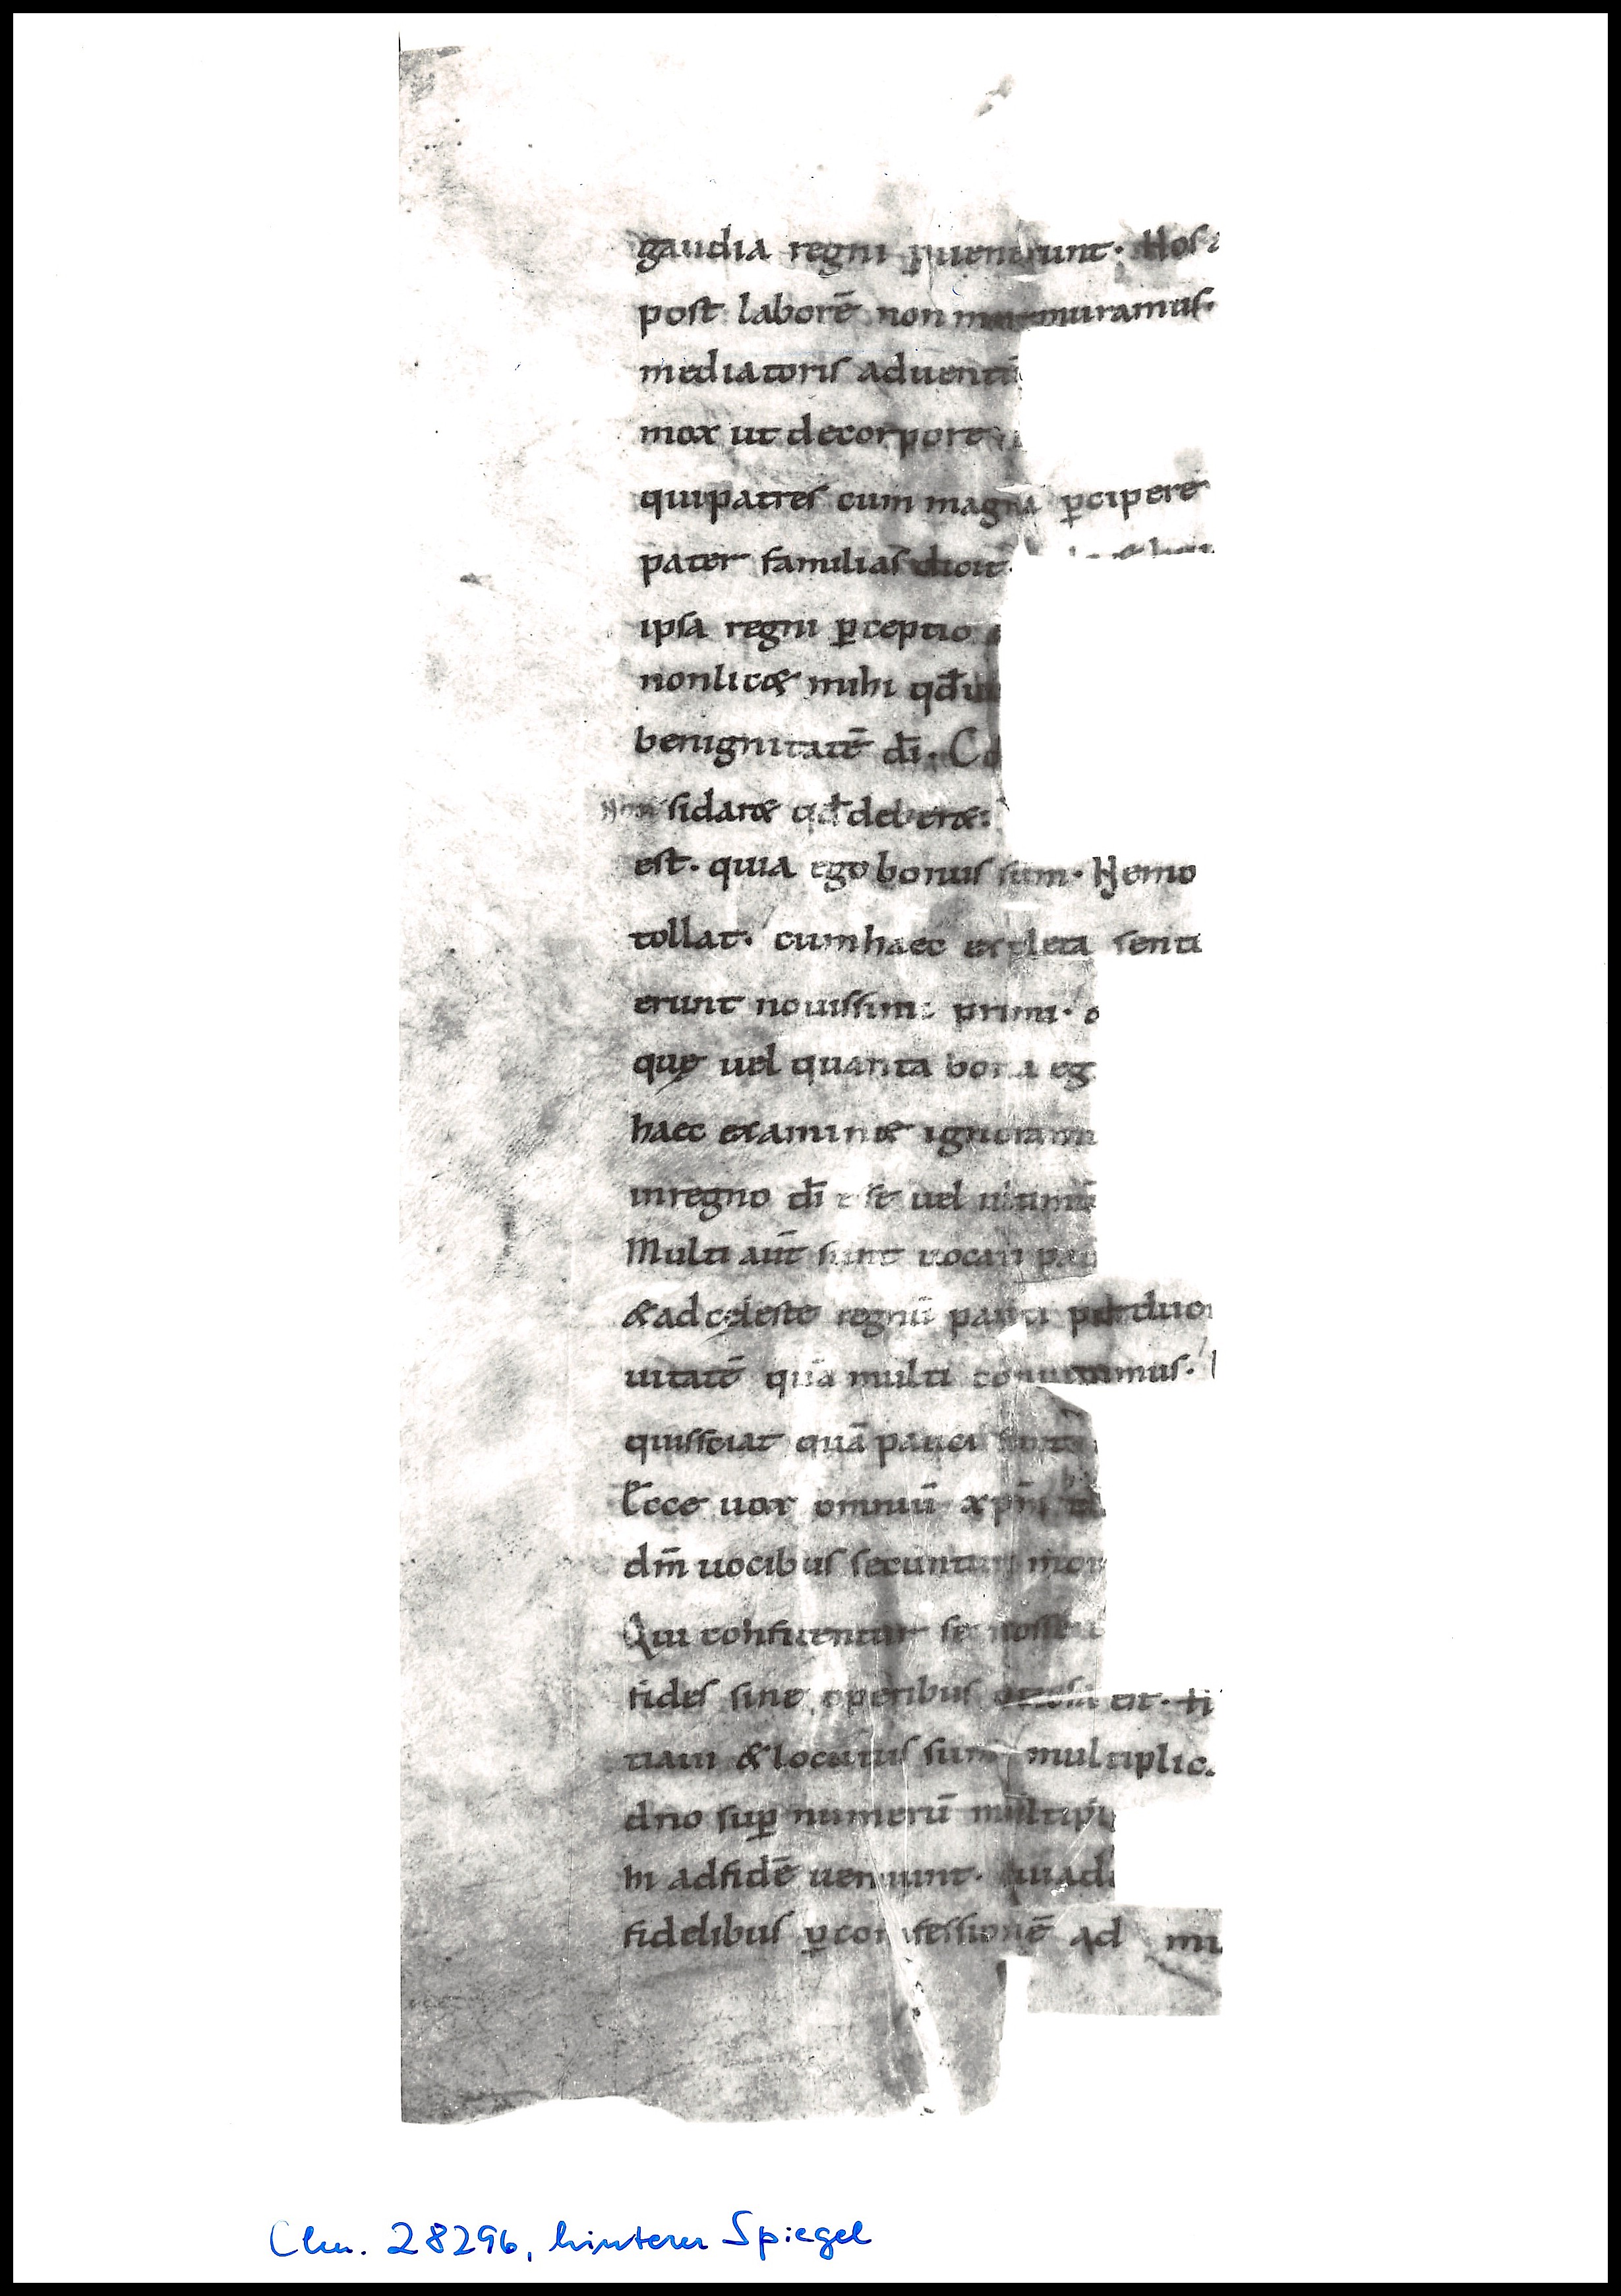 gaudia regni puenerunt. Nos a
post laborē non murmuramus.
mediatoris aduentū
mox ut decorpore
quipatres cum magna pcipere
pater familias dicit.
ipsa regni pceptio
nonlic& mihi qđ
benignitatē dī. Co
Non sidar& qđ deber&.
est. quia ego bonus sum. Nemo
tollat. cumhaec expleta senti
erunt nouissimi primi.
quę uel quanta bona eg
haec examin& ignoram
inregno dī esse uel ultimū
Multi aūt sunt uocati pau
&adcęleste regnū pauci pducu
uitatē quia multi conuenimus.
quissciat quā pauci
Ecce uox omniū xpm
dm̄ uocibus secuntur mor
Qui confitentur se nosse
fides sine operibus otiosa est.
tiaui &locutus sum multiplic
dno sup numerū multipli
In adfidē ueniunt. quiad
fidelibus pconfessionē ad mu
Clm. 28296, hinterer Spiegel